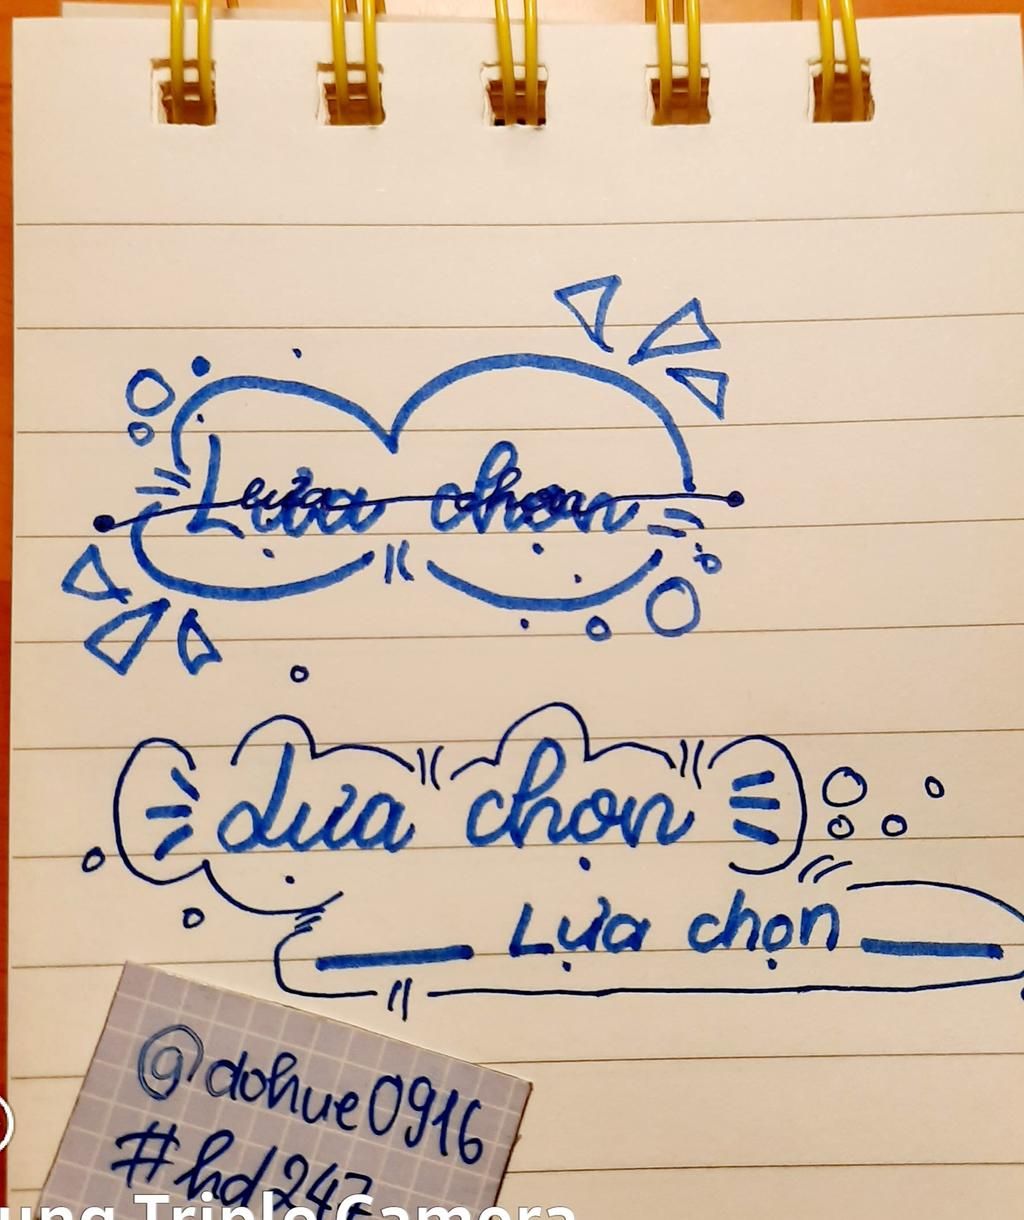 Lựa chọn
Lựa chọn
Lựa chọn
@dohue0916
#hd247
ung Triple Camera